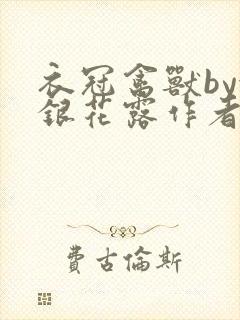 衣冠禽獸by
銀花露作者
費古倫斯